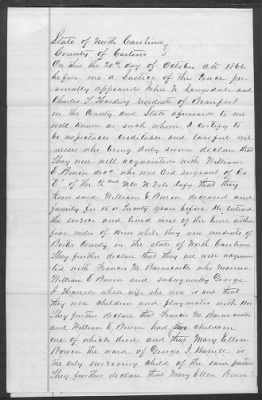 State of North Carolina
County of Carteret
On this the 20th day of October AD 186
before me a Justice of the Peace per
sonally appeared John N. Langsdale and
Charles T. Harding residents of Beaufort
in the County and State aforesaid to me
well known as such whom I certify to
be respectable creditable and lawful wit
nesses who being duly sworn declare that
they were well acquainted with William
E. Bowen decd who was Ord sergeant of Co
of the 2nd N.C. N. Vols Infy that they
knew said William E Bowen deceased and
family for years before he entered
the service and lived most of the time within
five miles of them while they were residents of
County in the state of North Carolina
They further declare that they are well acquain
ted with Frances M. who married
William E Bowen and subsequently George
J. Howell whose wife she now is and that
they were children and playmates with her
They further declare that Frances M.
and William E. Bowen had two children
one of which died and that Mary Ellen
Bowen the ward of George J. Howell is
the only surviving child of the same parties
They further declare that Mary Ellen Bowen